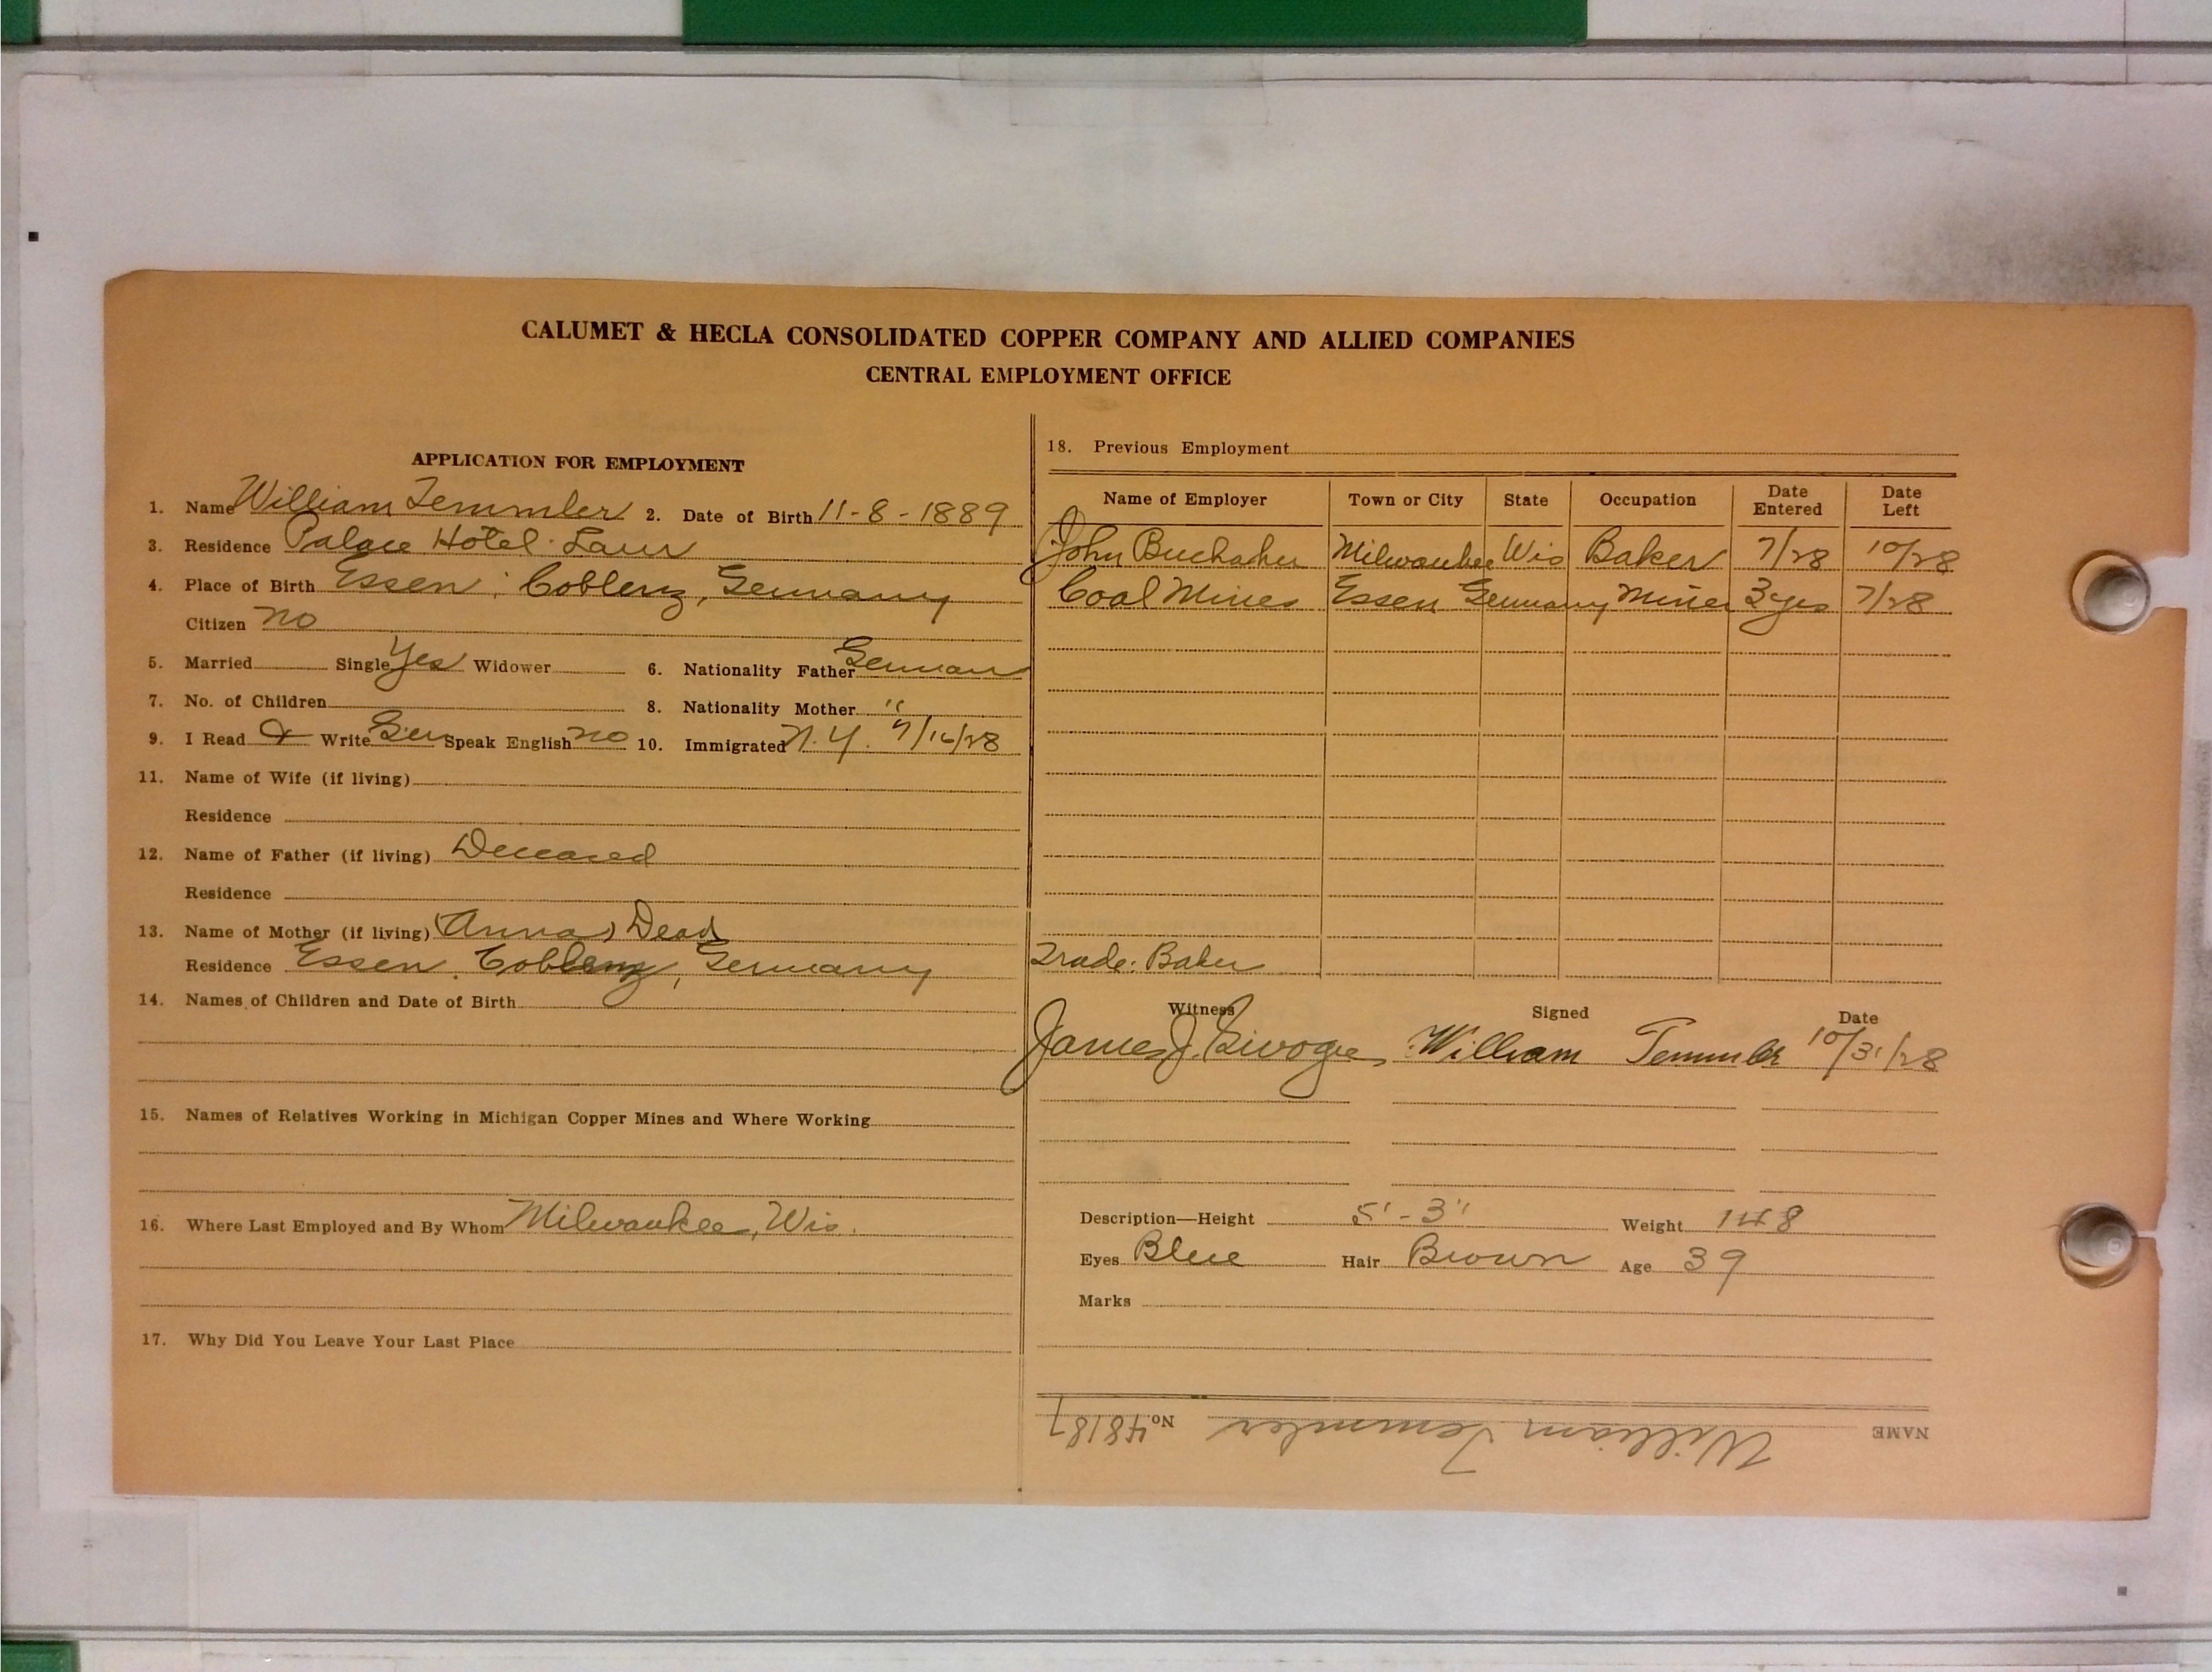 CALUMET & HECLA CONSOLIDATED COPPER COMPANY AND ALLIED COMPANIES
CENTRAL EMPLOYMENT OFFICE
APPLICATION FOR EMPLOYMENT
1. Name William Temmler 2. Date of Birth 11-8-1889
3. Residence Palace Hotel Laur
4. Place of Birth Essen, Coblenz, Germany
Citizen no
5. Married Single Yes Widower 6. Nationality Father German
7. No. of Children 8. Nationality Mother "
9. I Read & Write Ger Speak English no 10. Immigrated N.Y. 7/16/28
11. Name of Wife (if living)
Residence
12. Name of Father (if living) Deceased
Residence
13. Name of Mother (if living) (Anna) Dead
Residence Essen, Coblenz, Germany
14. Names of Children and Date of Birth
15. Names of Relatives Working in Michigan Copper Mines and Where Working
16. Where Last Employed and By Whom Milwaukee, Wis.
17. Why Did You Leave Your Last Place
18. Previous Employment
Name of Employer Town or City State Occupation Date Entered Date Left
John Milwaukee Wis Baker 7/28 10/28
Coal Mines Essen Germany Miner 3 yrs 7/28
Trade: Baker
Witness Signed Date
James J. William Temmler 10/31/28
Description—Height 5'-3" Weight 148
Eyes Blue Hair Brown Age 39
Marks
NAME William Temmler No. 48187